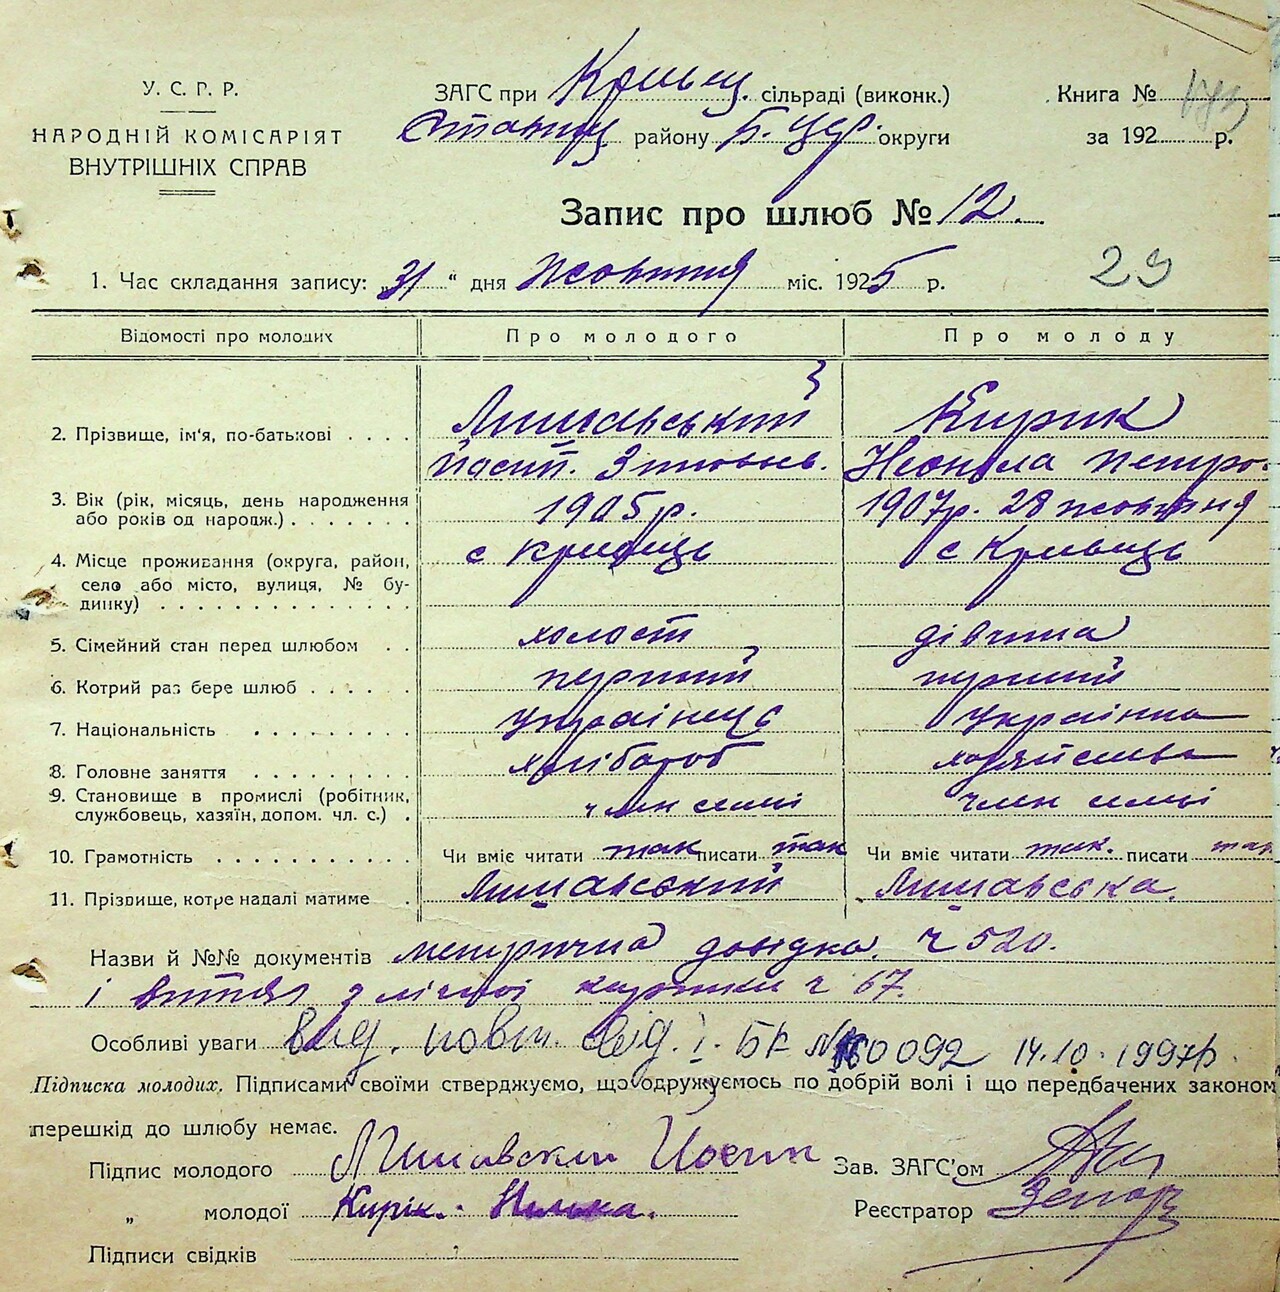 У. С. Р. Р.
НАРОДНІЙ КОМІСАРІЯТ
ВНУТРІШНІХ СПРАВ
ЗАГС при Кривец. сільраді (виконк.)
району Б. Цер. округи
Книга №
за 192 р.
Запис про шлюб № 12.
29
1. Час складання запису: „31" дня жовтня міс. 1925 р.
Відомості про молодих
Про молодого
Про молоду
2. Прізвище, ім'я, по-батькові
Лишавський
Йосип. Зіновів.
Кирик
Неоніла Петро.
3. Вік (рік, місяць, день народження
або років од народж.)
1905 р.
1907 р. 28 жовтня
4. Місце проживання (округа, район,
село або місто, вулиця, № бу-
динку)
с Кривець
с Кривець
5. Сімейний стан перед шлюбом
холост
дівчина
6. Котрий раз бере шлюб
перший
перший
7. Національність
Українец
Українка
8. Головне заняття
хлібороб
хазяйсва
9. Становище в промислі (робітник,
службовець, хазяїн, допом. чл. с.)
член семі
член семьі
10. Грамотність
Чи вміє читати так писати так
Чи вміє читати так. писати так
11. Прізвище, котре надалі матиме
Лишавський
Лишавська.
Назви й №№ документів метрична довідка. ч 520.
і витяг з лічної картки ч 67.
Особливі уваги вид. повт. свід. І-БК № 60092 14.10.1997р.
Підписка молодих. Підписами своїми стверджуємо, що одружуємось по добрій волі і що передбачених законом
перешкід до шлюбу немає.
Підпис молодого Лишавский Иосип
Зав. ЗАГС'ом
„ молодої Кирік. Нілька.
Реєстратор
Підписи свідків